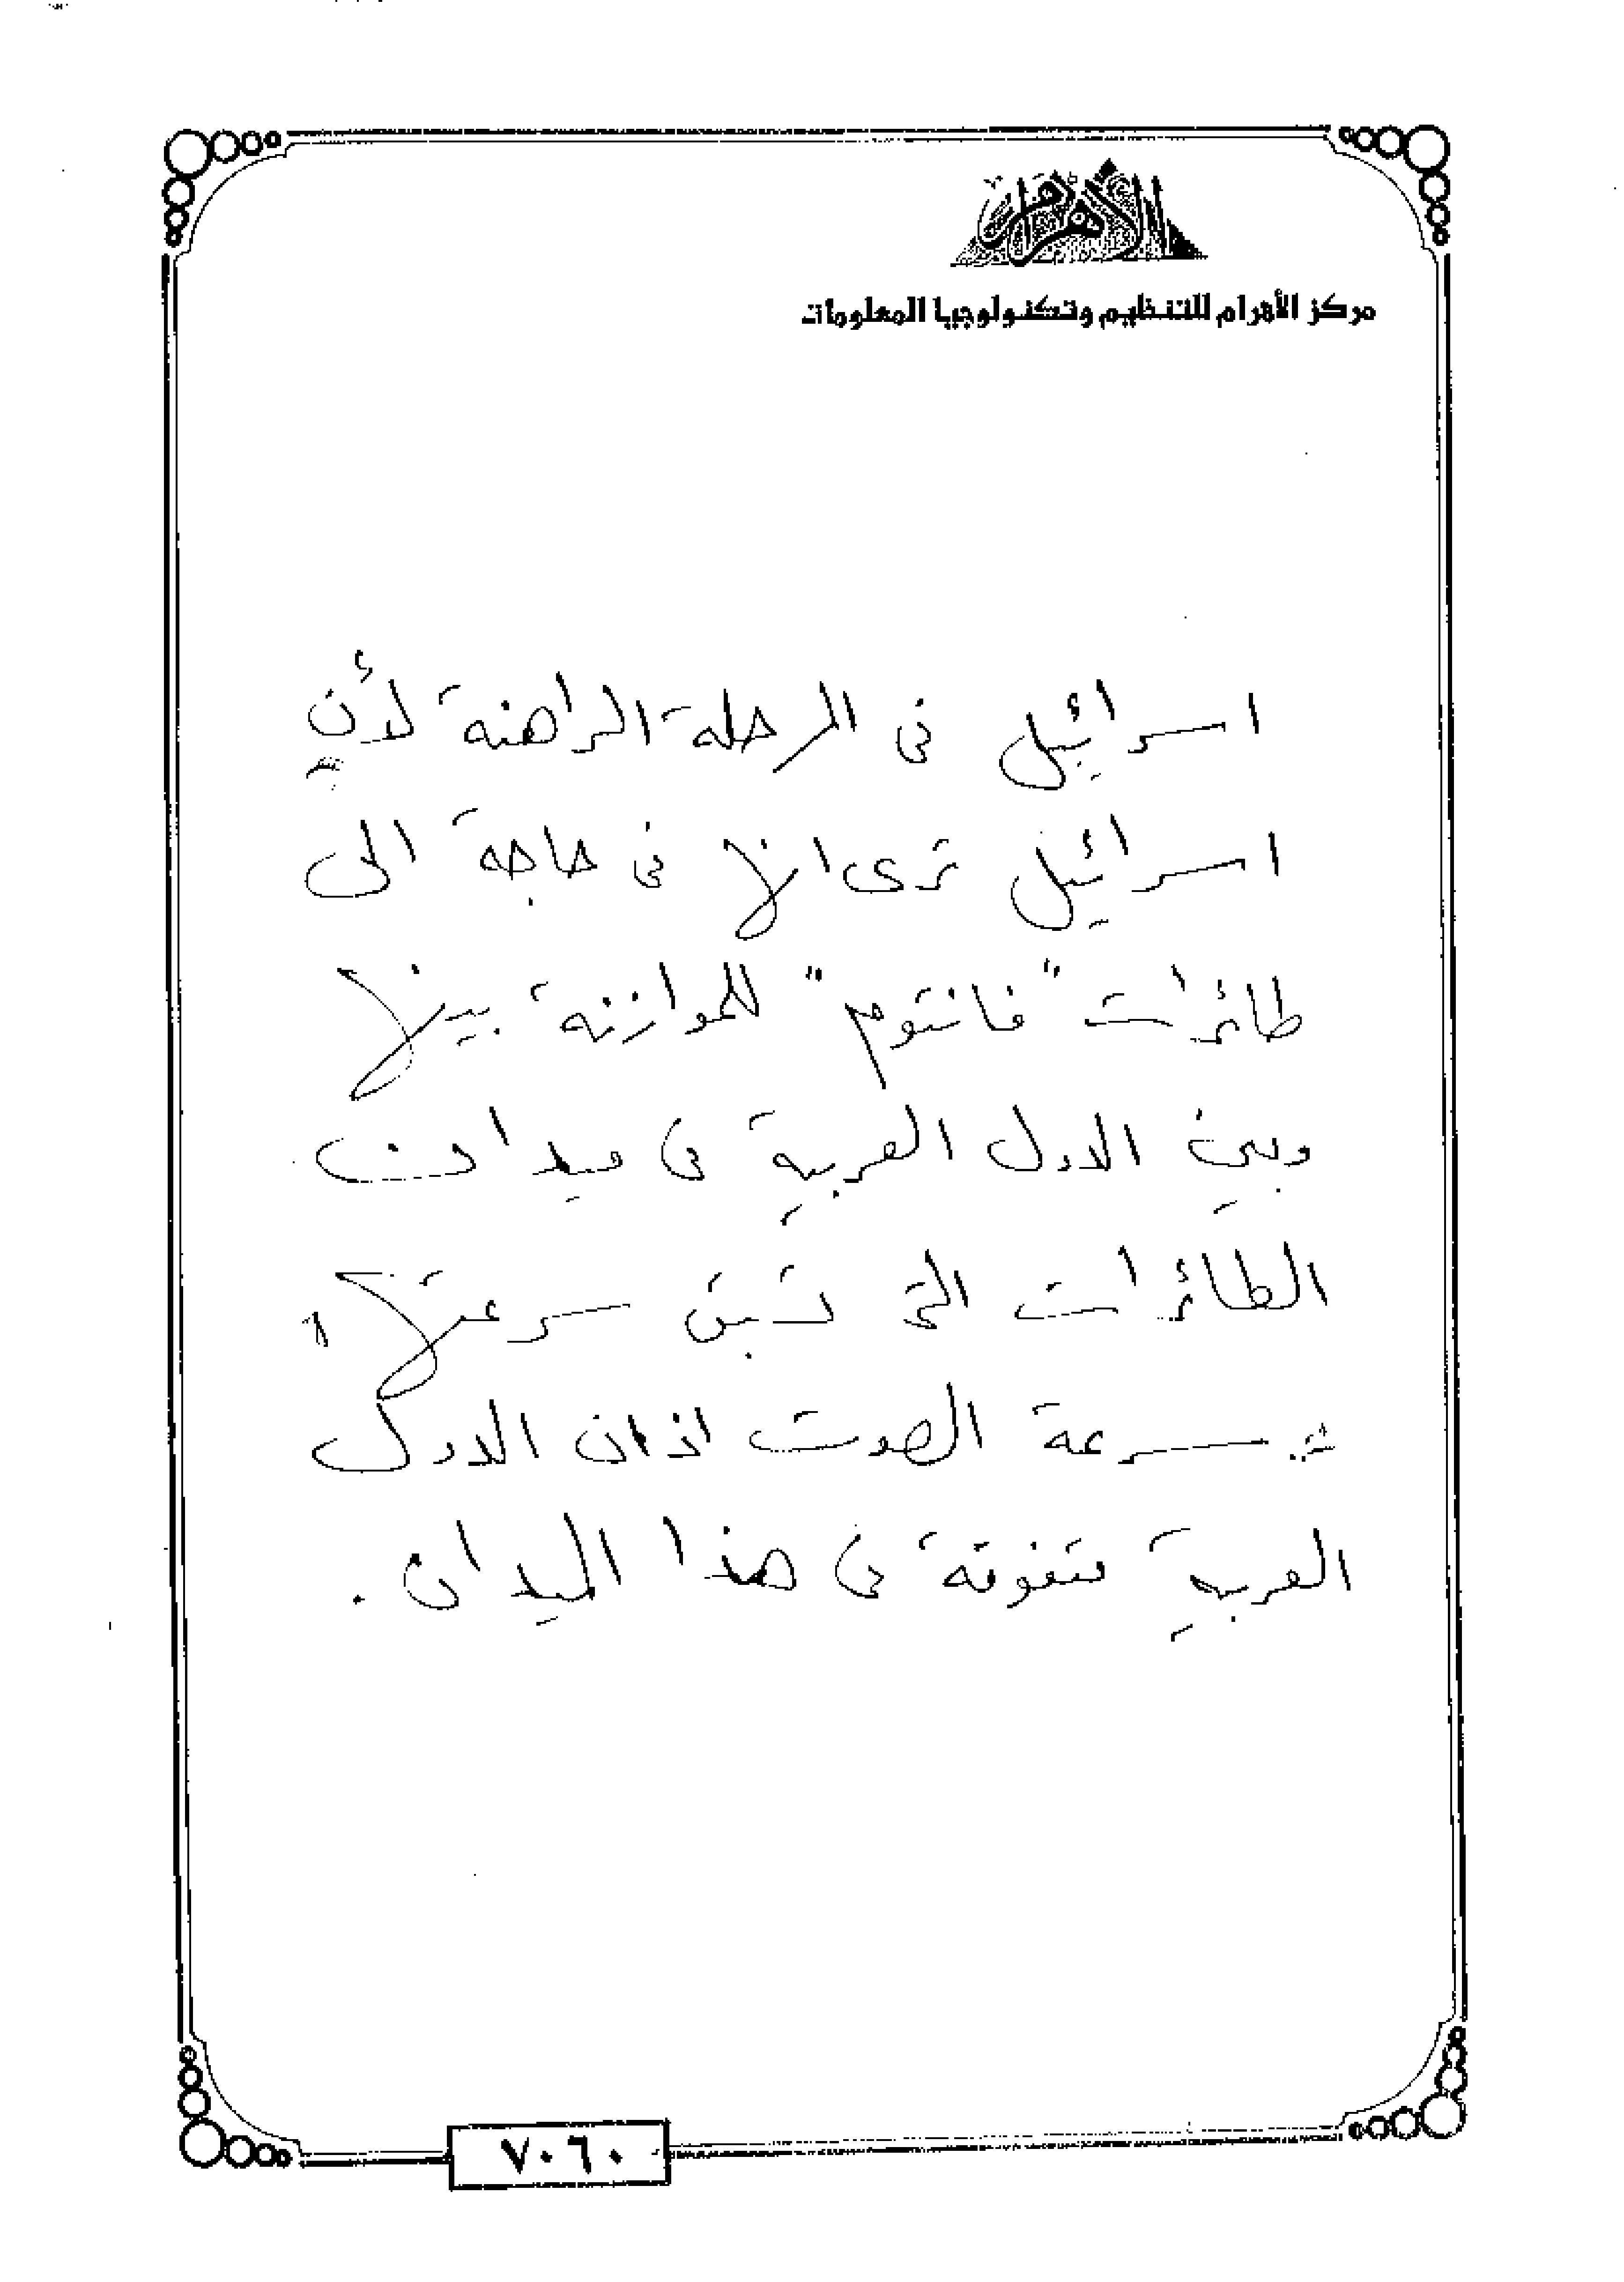 الأهرام
مركز الأهرام للتنظيم وتكنولوجيا المعلومات
اسرائيل فى المرحلة الراهنة لأن
اسرائيل ترى انها فى حاجة الى
طائرات "فانتوم" للموازنة بينها
وبين الدول العربية فى ميدان
الطائرات التى تسبق سرعتها
سرعة الصوت اذ ان الدول
العربية متفوقة فى هذا الميدان .
٧٠٦٠